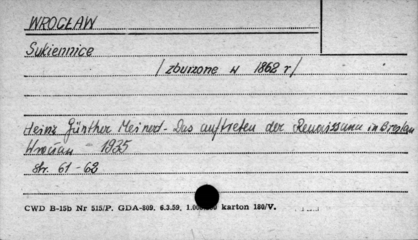 WROCŁAW
Sukiennice
/ zburzone w 1862 r/
Heinz Günther Meinert - Das auftreten der Renaissance in Breslau
- 1935
str. 61-62
CWD B-15b Nr 515/P. GDA-809. 6.3.59. karton 180/V.